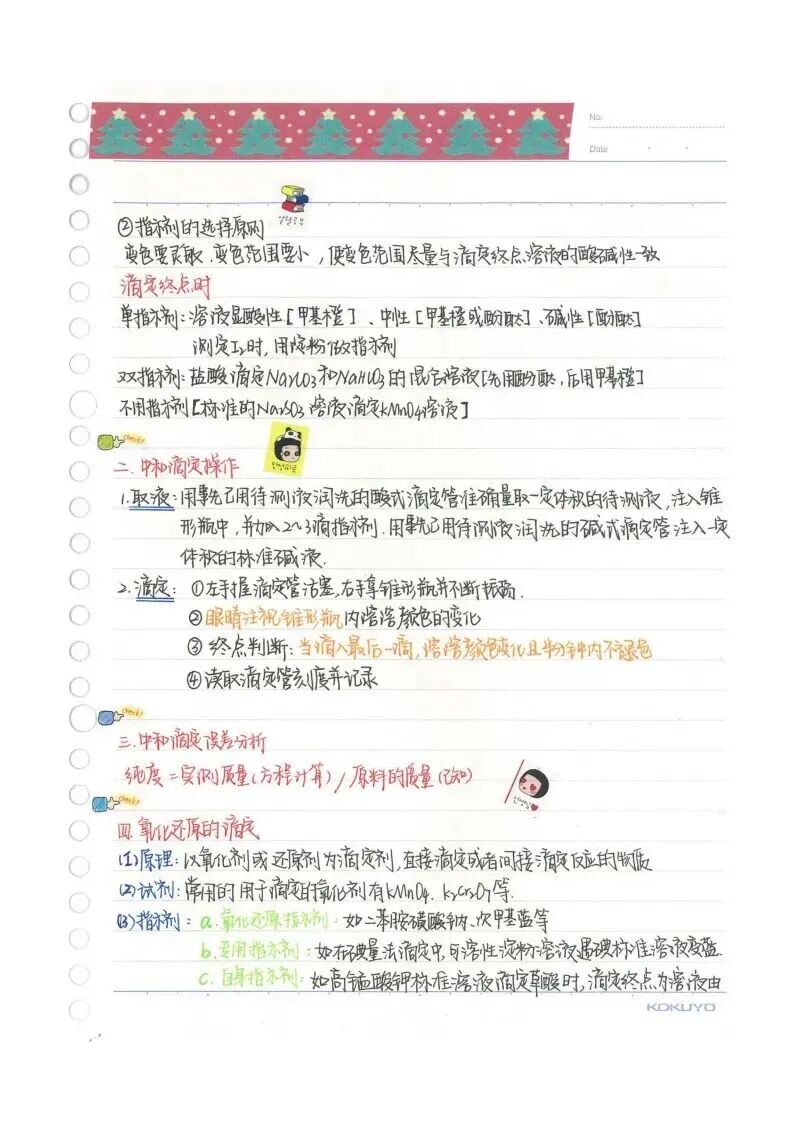 No.
Date
②指示剂的选择原则
变色要灵敏、变色范围要小，使变色范围尽量与滴定终点溶液的酸碱性一致
滴定终点时
单指示剂：溶液显酸性[甲基橙]、中性[甲基橙或酚酞]、碱性[酚酞]
测定I₂时，用淀粉做指示剂
双指示剂：盐酸滴定Na₂CO₃和NaHCO₃的混合溶液[先用酚酞，后用甲基橙]
不用指示剂[标准的Na₂SO₃溶液滴定KMnO₄溶液]
check!
二.中和滴定操作
1.取液：用事先已用待测液润洗的酸式滴定管准确量取一定体积的待测液，注入锥
形瓶中，并加入2~3滴指示剂.用事先已用待测液润洗的碱式滴定管注入一定
体积的标准碱液.
2.滴定：①左手握滴定管活塞，右手拿锥形瓶并不断振荡.
②眼睛注视锥形瓶内溶液颜色的变化
③终点判断：当滴入最后一滴，溶液颜色变化且半分钟内不褪色
④读取滴定管刻度并记录
check!
三.中和滴定误差分析
纯度=实测质量(方程计算)/原料的质量(已知)
check!
四.氧化还原的滴定
(1)原理：以氧化剂或还原剂为滴定剂，直接滴定或者间接滴定反应的物质
(2)试剂：常用的用于滴定的氧化剂有KMnO₄、K₂Cr₂O₇等.
(3)指示剂：a.氧化还原指示剂：如二苯胺磺酸钠、次甲基蓝等
b.专用指示剂：如在碘量法滴定中，可溶性淀粉溶液遇碘标准溶液变蓝.
c.自身指示剂：如高锰酸钾标准溶液滴定草酸时，滴定终点为溶液由
KOKUYO